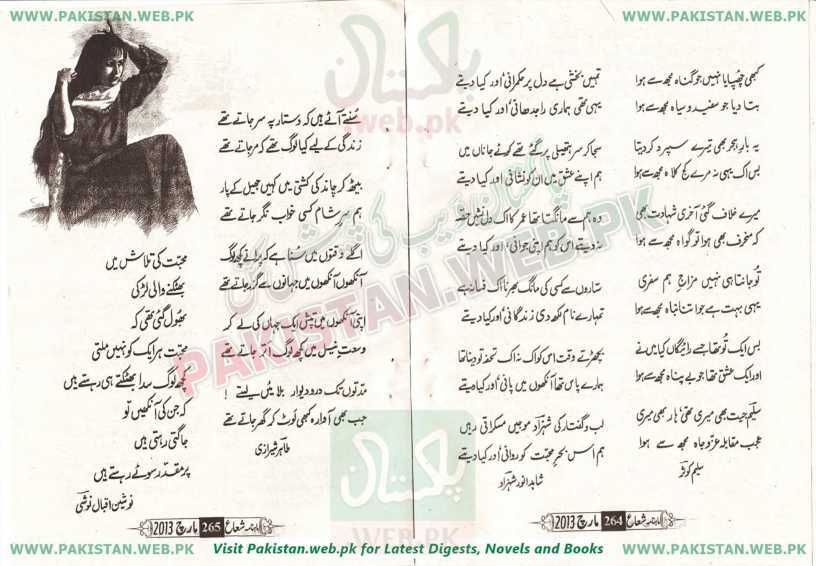 WWW.PAKISTAN.WEB.PK
WWW.PAKISTAN.WEB.PK
کبھی چھپایا نہیں جو گناہ مجھ سے ہوا
بتا دیا جو سفید و سیاہ مجھ سے ہوا
یہ بار ہجر بھی تیرے سپرد کر دیتا
بس اک یہی نہ مرے کج کلاہ مجھ سے ہوا
میرے خلاف گئی آخری شہادت بھی
کہ منحرف بھی ہوا تو گواہ مجھ سے ہوا
تو جانتا ہی نہیں مزاج ہم سفری
یہی بہت ہے جو اتنا نباہ مجھ سے ہوا
بس ایک تو تھا جسے رائیگاں کیا میں نے
اور ایک عشق تھا جو بے پناہ مجھ سے ہوا
سلیم جیت بھی میری تھی ہار بھی میری
عجب مقابلہ عز و جاہ مجھ سے ہوا
سلیم کوثر
تمہیں بخشی ہے دل پر حکمرانی اور کیا دیتے
یہی تھی ہماری راجدھانی اور کیا دیتے
سجا کر سر ہتھیلی پر گئے تھے کوئے جاناں میں
ہم اپنے عشق میں ان کو نشانی اور کیا دیتے
وہ ہم سے مانگتا تھا عمر کا اک دل نشیں حصہ
نہ دیتے اس کو ہم اپنی جوانی اور کیا دیتے
ستاروں سے کسی کی مانگ بھرنا اک فسانہ ہے
تمہارے نام لکھ دی زندگانی اور کیا دیتے
بچھڑتے وقت اس کو اک نہ اک تحفہ تو دینا تھا
ہمارے پاس تھا آنکھوں میں پانی اور کیا دیتے
لب و گفتار کی شہزاد موجیں مسکراتی رہیں
ہم اس بحر محبت کو روانی اور کیا دیتے
شاہد انور شہزاد
ماہنامہ شعاع 264 مارچ 2013
سنتے آئے ہیں کہ دستار پہ سر جاتے تھے
زندگی کے لیے کیا لوگ تھے کہ مر جاتے تھے
بیٹھ کر چاند کی کشتی میں کہیں جھیل کے پار
ہم سر شام کسی خواب نگر جاتے تھے
اگلے وقتوں میں سنا ہے کہ پرانے کچھ لوگ
آنکھوں آنکھوں میں جہانوں سے گزر جاتے تھے
اپنی آنکھوں میں تپش ایک جہاں کی لے کر
وسعت نیل میں کچھ لوگ اتر جاتے تھے
مدتوں تک در و دیوار بلائیں لیتے !
جب بھی آوارہ کبھی لوٹ کر گھر جاتے تھے
طاہر شیرازی
محبت کی تلاش میں
بھٹکنے والی لڑکی
بھول گئی تھی کہ
محبت ہر ایک کو نہیں ملتی
کچھ لوگ سدا بھٹکتے ہی رہتے ہیں
کہ جن کی آنکھیں تو
جاگتی رہتی ہیں
پر مقدر سوئے رہتے ہیں
نوشین اقبال نوشی
ماہنامہ شعاع 265 مارچ 2013
پاکستان
web.pk
پاکستان ویب کی پیشکش
PAKISTAN.WEB.PK
پاکستان
WEB.PK
WWW.PAKISTAN.WEB.PK
Visit Pakistan.web.pk for Latest Digests, Novels and Books
WWW.PAKISTAN.WEB.PK